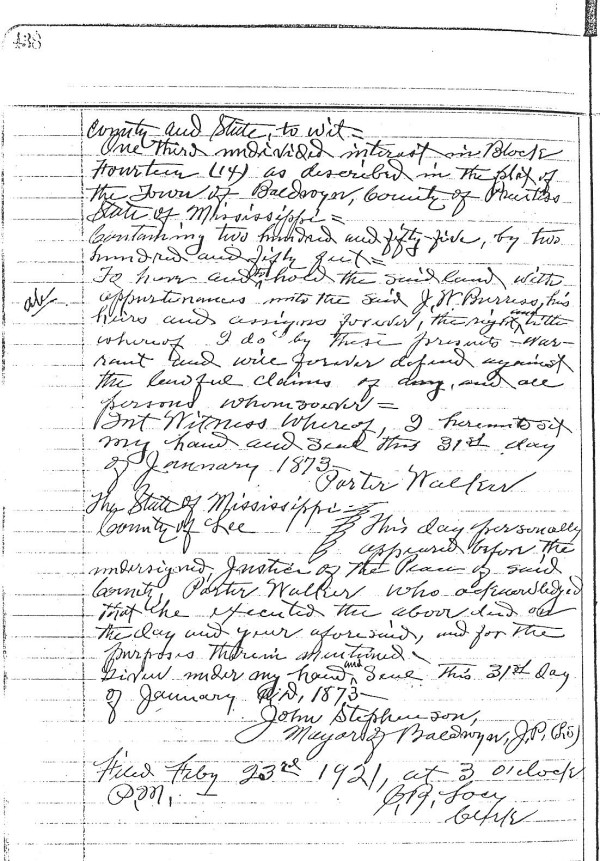 438
County and State, to wit =
One third undivided interest in Block
Fourteen (14) as described in the plat of
the Town of Baldwyn, County of Prentiss
State of Mississippi =
Containing two hundred and fifty five, by two
hundred and fifty feet =
To have and to hold the said land with
appurtenances unto the said J. W. Burress, his
heirs and assigns forever, the right and title
whereof I do by these presents - war-
rant and will forever defend against
the lawful claims of any, and all
persons whomsoever =
Int Witness Whereof, I hereunto set
my hand and seal this 31st day
of January 1873-
Porter Walker
The State of Mississippi =
County of Lee This day personally
appeared before the
undersigned Justice of the Peace of said
County, Porter Walker who acknowledged
that he executed the above deed on
the day and year aforesaid, and for the
purposes therein mentioned -
Given under my hand and Seal this 31st day
of January A.D. 1873-
John Stephenson,
Mayor & Baldwyn, J.P. (LS)
Filed Feby 23rd 1921, at 3 O'clock
P.M.
Clerk